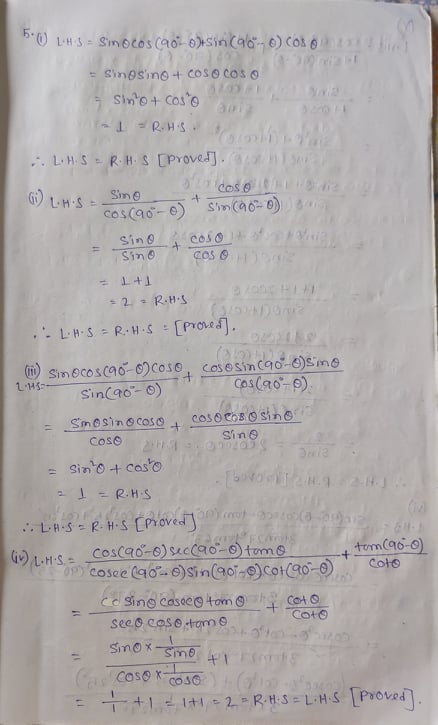 5. (i) L.H.S = sinθcos(90°-θ)+sin(90°-θ) cosθ
= sinθsinθ + cosθ cosθ
= sin²θ + cos²θ
= 1 = R.H.S.
∴ L.H.S = R.H.S [Proved].
(ii) L.H.S = sinθ/cos(90°-θ) + cosθ/sin(90°-θ)
= sinθ/sinθ + cosθ/cosθ
= 1+1
= 2 = R.H.S
∴ L.H.S = R.H.S = [Proved].
(iii) L.H.S= sinθcos(90°-θ)cosθ/sin(90°-θ) + cosθsin(90°-θ)sinθ/cos(90°-θ)
= sinθsinθcosθ/cosθ + cosθcosθsinθ/sinθ
= sin²θ + cos²θ
= 1 = R.H.S
∴ L.H.S = R.H.S [Proved]
(iv) L.H.S = cos(90°-θ)sec(90°-θ)tanθ/cosec(90°-θ)sin(90°-θ)cot(90°-θ) + tan(90°-θ)/cotθ
= sinθ cosecθ tanθ/secθ.cosθ.tanθ + cotθ/cotθ
= sinθ × 1/sinθ / cosθ × 1/cosθ + 1
= 1/1 + 1 = 1+1 = 2 = R.H.S = L.H.S [Proved].